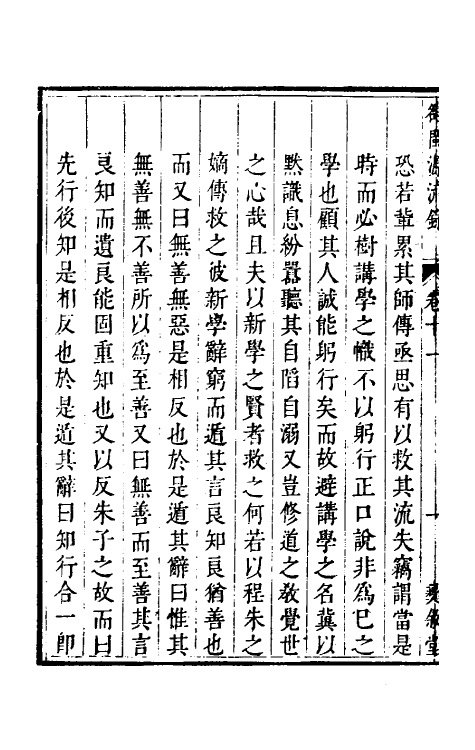 恐若輩累其師傳亟思有以救其流失竊謂當是
時而必樹講學之幟不以躬行正口說非為已之
學也顧其人誠能躬行矣而故避講學之名冀以
黙識息紛囂聽其自䧟自溺又豈修道之敎覺世
之心哉且夫以新學之賢者救之何若以程朱之
嫡傳救之彼新學辭窮而遁其言良知良猶善也
而又曰無善無惡是相反也於是遁其辭曰惟其
無善無不善所以爲至善又曰無善而至善其言
良知而遺良能固重知也又以反朱子之故而曰
先行後知是相反也於是遁其辭曰知行合一卽
卷十一
十